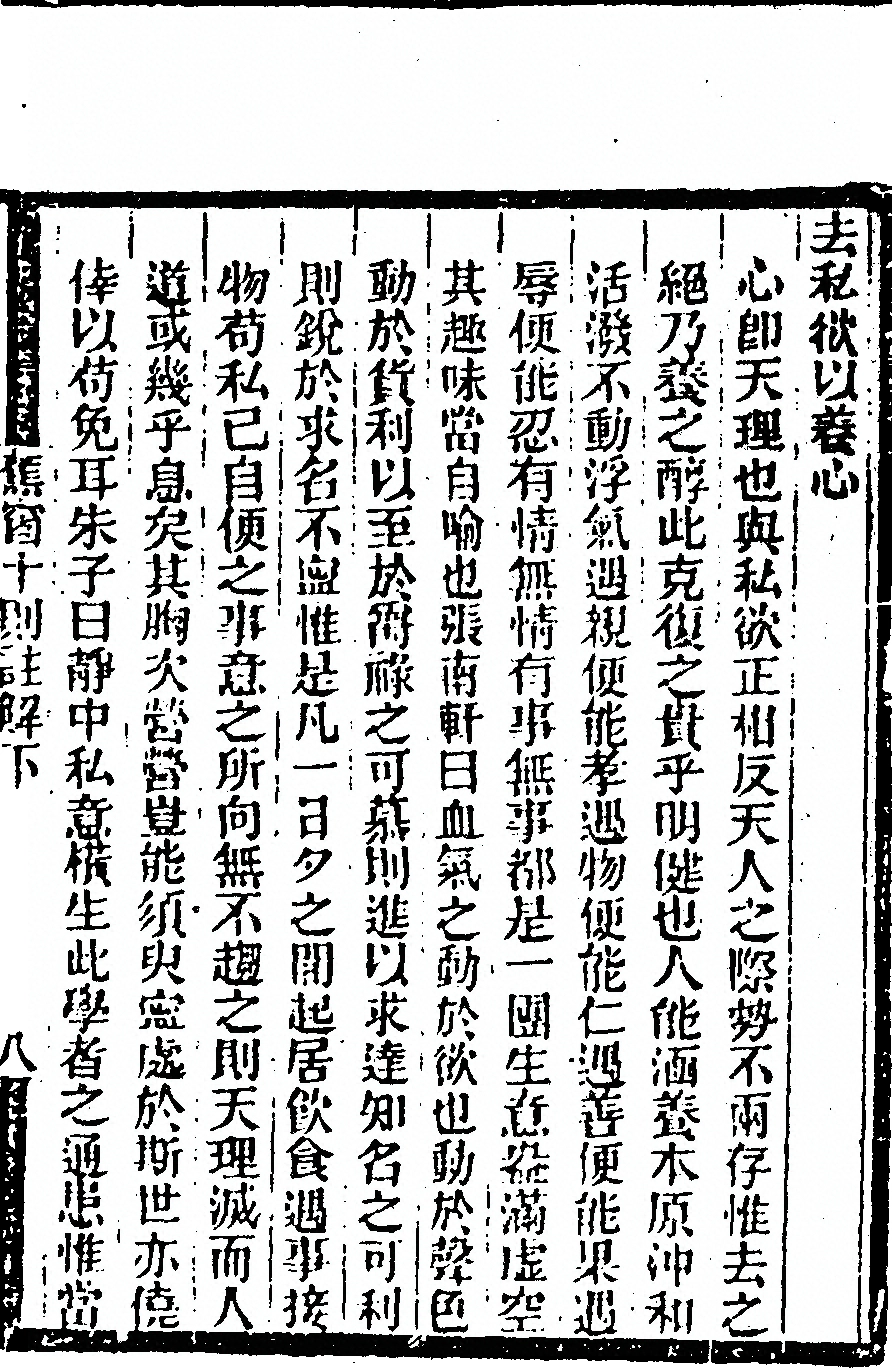 去私欲以養心
心卽天理也與私欲正相反天人之際勢不兩存惟去之
絕乃養之醇此克復之貴乎明健也人能涵養木原沖和
活潑不動浮氣遇親便能孝遇物便能仁遇善便能果遇
辱便能忍有情無情有事無事都是一團生意盎滿虛空
其趣味當自喻也張南軒曰血氣之動於欲也動於聲色
動於貨利以至於爵祿之可慕則進以求達知名之可利
則銳於求名不寧惟是凡一日夕之間起居飲食遇事接
物苟私已自便之事意之所向無不趨之則天理滅而人
道或幾乎息矣其胸次營營豈能須臾寧處於斯世亦僥
倖以苟免耳朱子曰靜中私意橫生此學者之通患惟當
蕉窗十則註解下
八